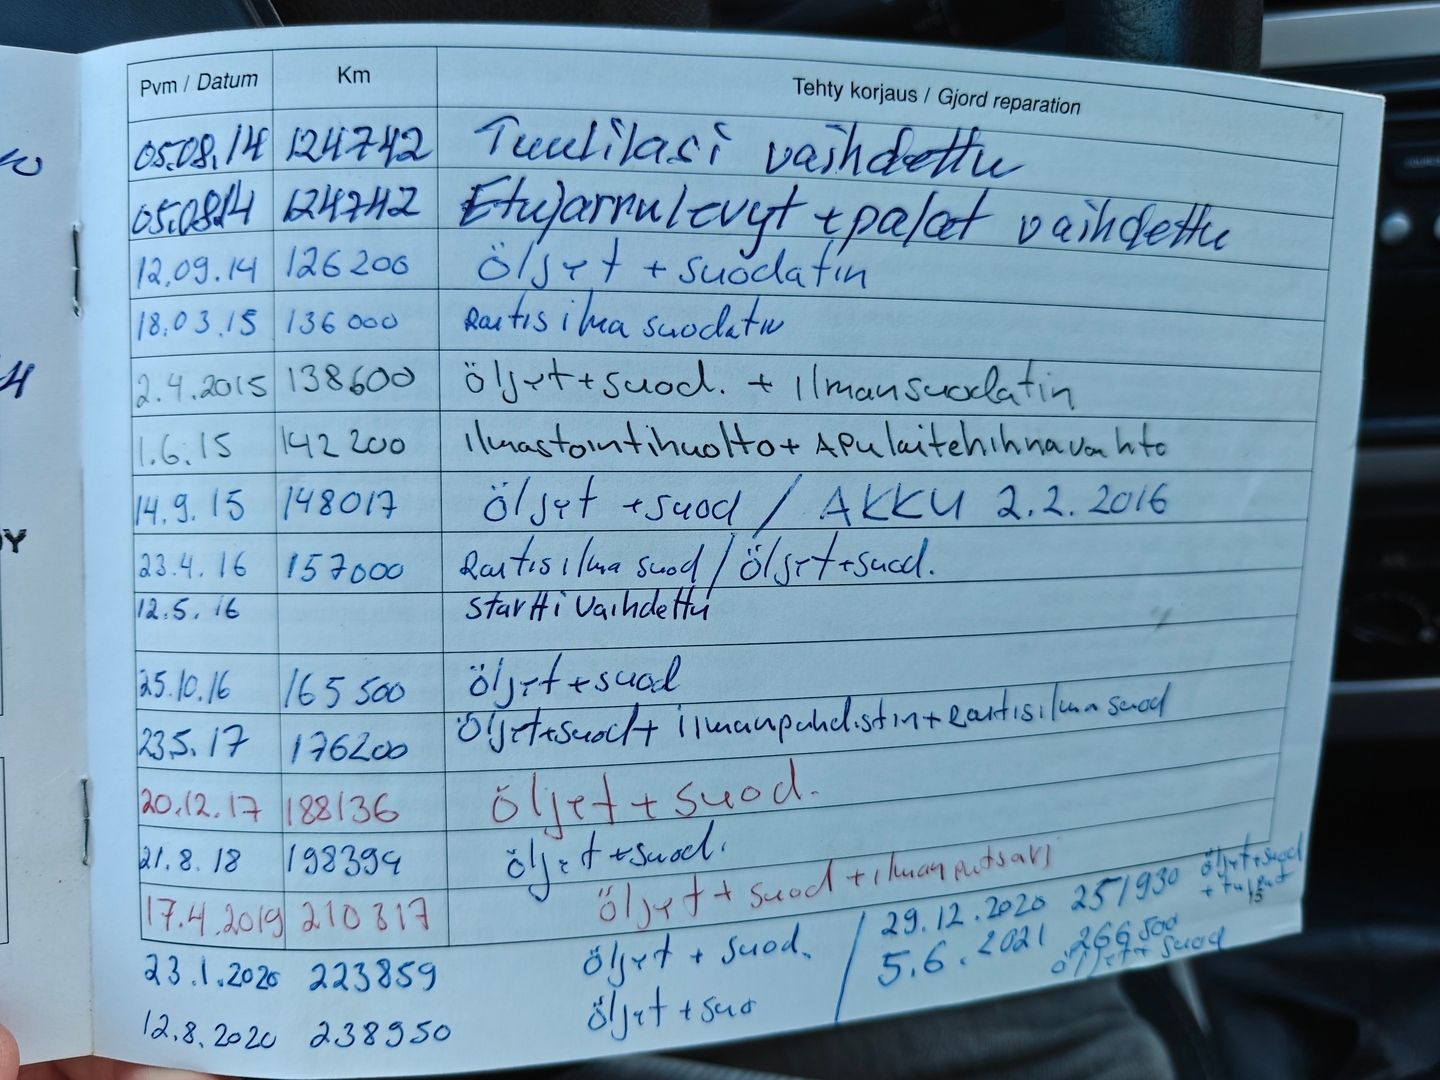 Pvm / Datum Km Tehty korjaus / Gjord reparation
05.08.14 124742 Tuulilasi vaihdettu
05.08.14 124742 Etujarrulevyt + palat vaihdettu
12.09.14 126200 Öljyt + suodatin
18.03.15 136000 Raitisilma suodatin
2.4.2015 138600 Öljyt + suod. + ilmansuodatin
1.6.15 142200 Ilmastointihuolto + Apulaitehihnavaihto
14.9.15 148017 Öljyt + suod / AKKU 2.2.2016
23.4.16 157000 Raitisilma suod / Öljyt + suod.
12.5.16 Startti vaihdettu
25.10.16 165500 Öljyt + suod
23.5.17 176200 Öljyt + suod + ilmanpuhdistin + Raitisilma suod
20.12.17 188136 Öljyt + suod.
21.8.18 198394 Öljyt + suod.
17.4.2019 210317 Öljyt + suod + ilmanputsari
23.1.2020 223859 Öljyt + suod. / 29.12.2020 251930 Öljyt + suod + tulpat
12.8.2020 238950 Öljyt + suo / 5.6.2021 266500 öljyt + suod